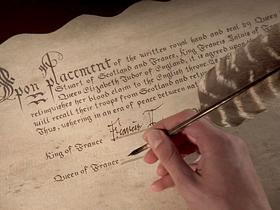 Upon placement of the written royal hand and seal by Queen
Stuart of Scotland and France, King Francis Valois of
Queen Elizabeth Tudor of England, it is agreed upon
relinquishes her blood claim to the English throne.
will recall their troops from Scotland and
Thus, ushering in an era of peace between
King of France Francis
Queen of France